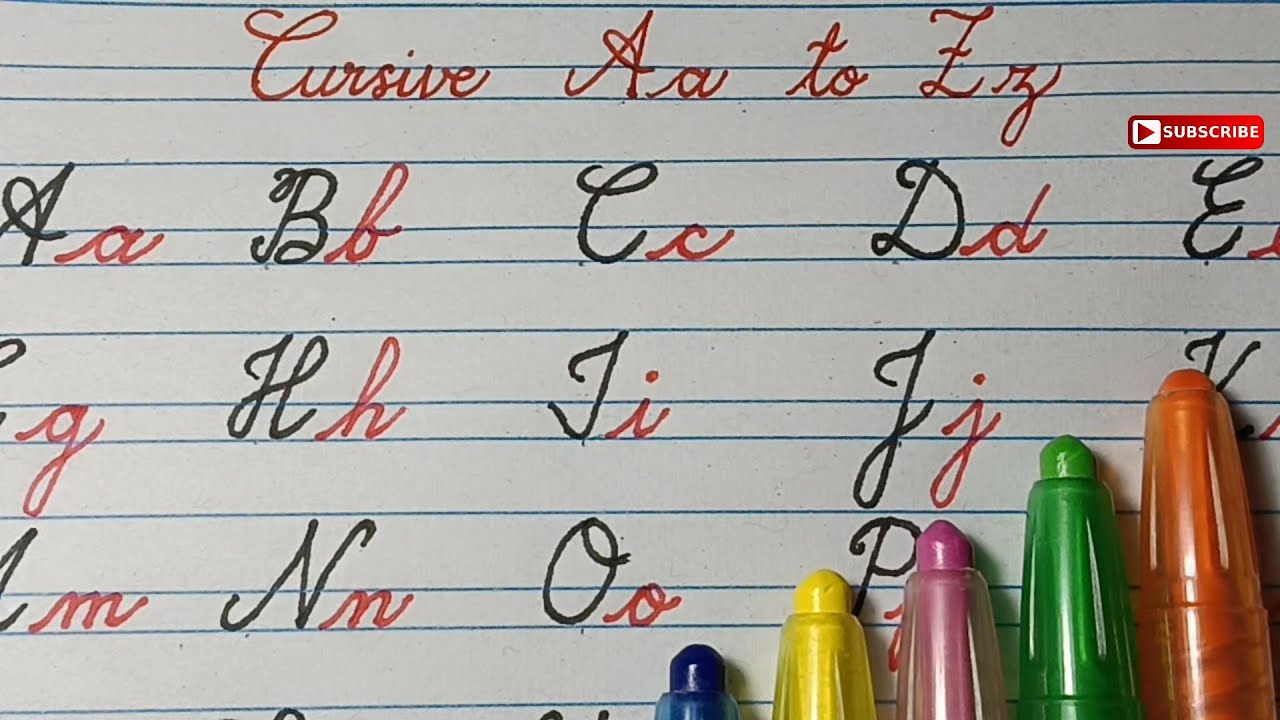 Cursive Aa to Zz
SUBSCRIBE
Aa Bb Cc Dd E
g Hh Ii Jj K
m Nn Oo P